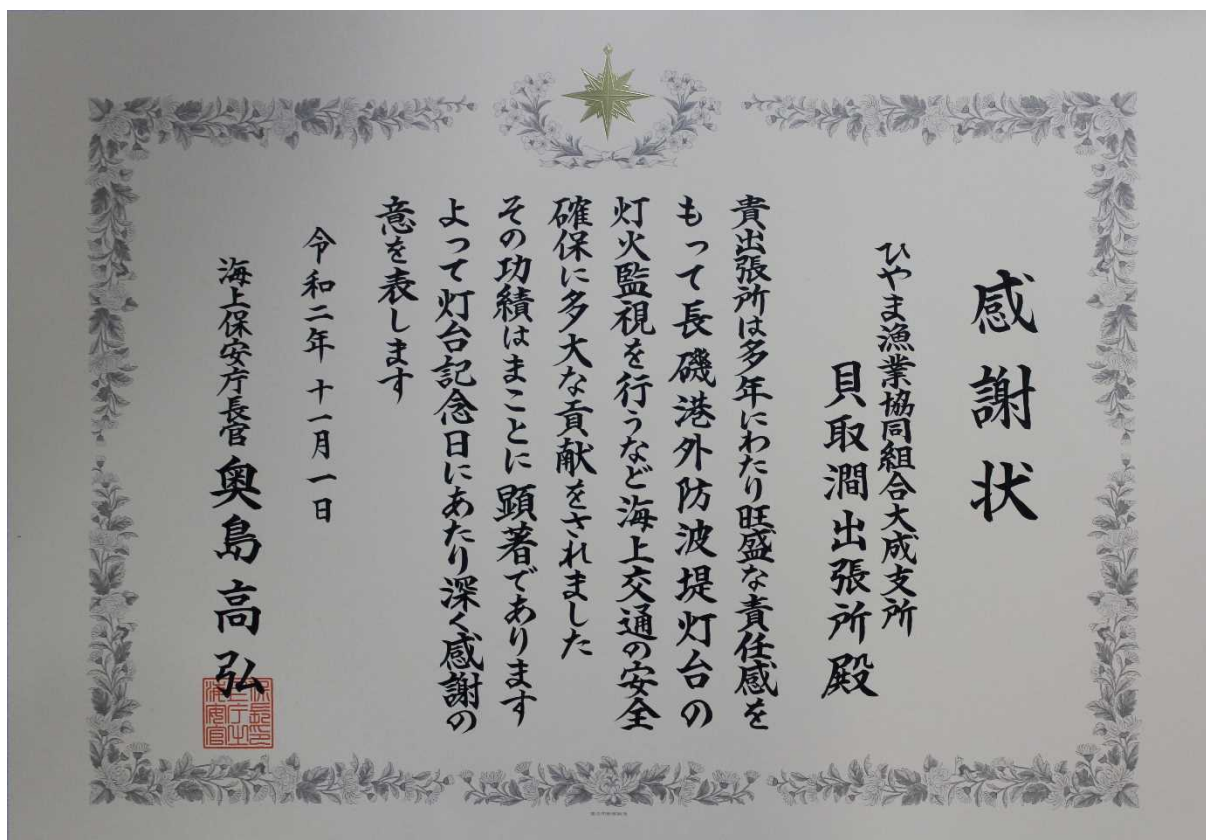 感謝状
ひやま漁業協同組合大成支所
貝取澗出張所殿
貴出張所は多年にわたり旺盛な責任感を
もって長磯港外防波堤灯台の
灯火監視を行うなど海上交通の安全
確保に多大な貢献をされました
その功績はまことに顕著であります
よって灯台記念日にあたり深く感謝の
意を表します
令和二年十一月一日
海上保安庁長官 奥島高弘